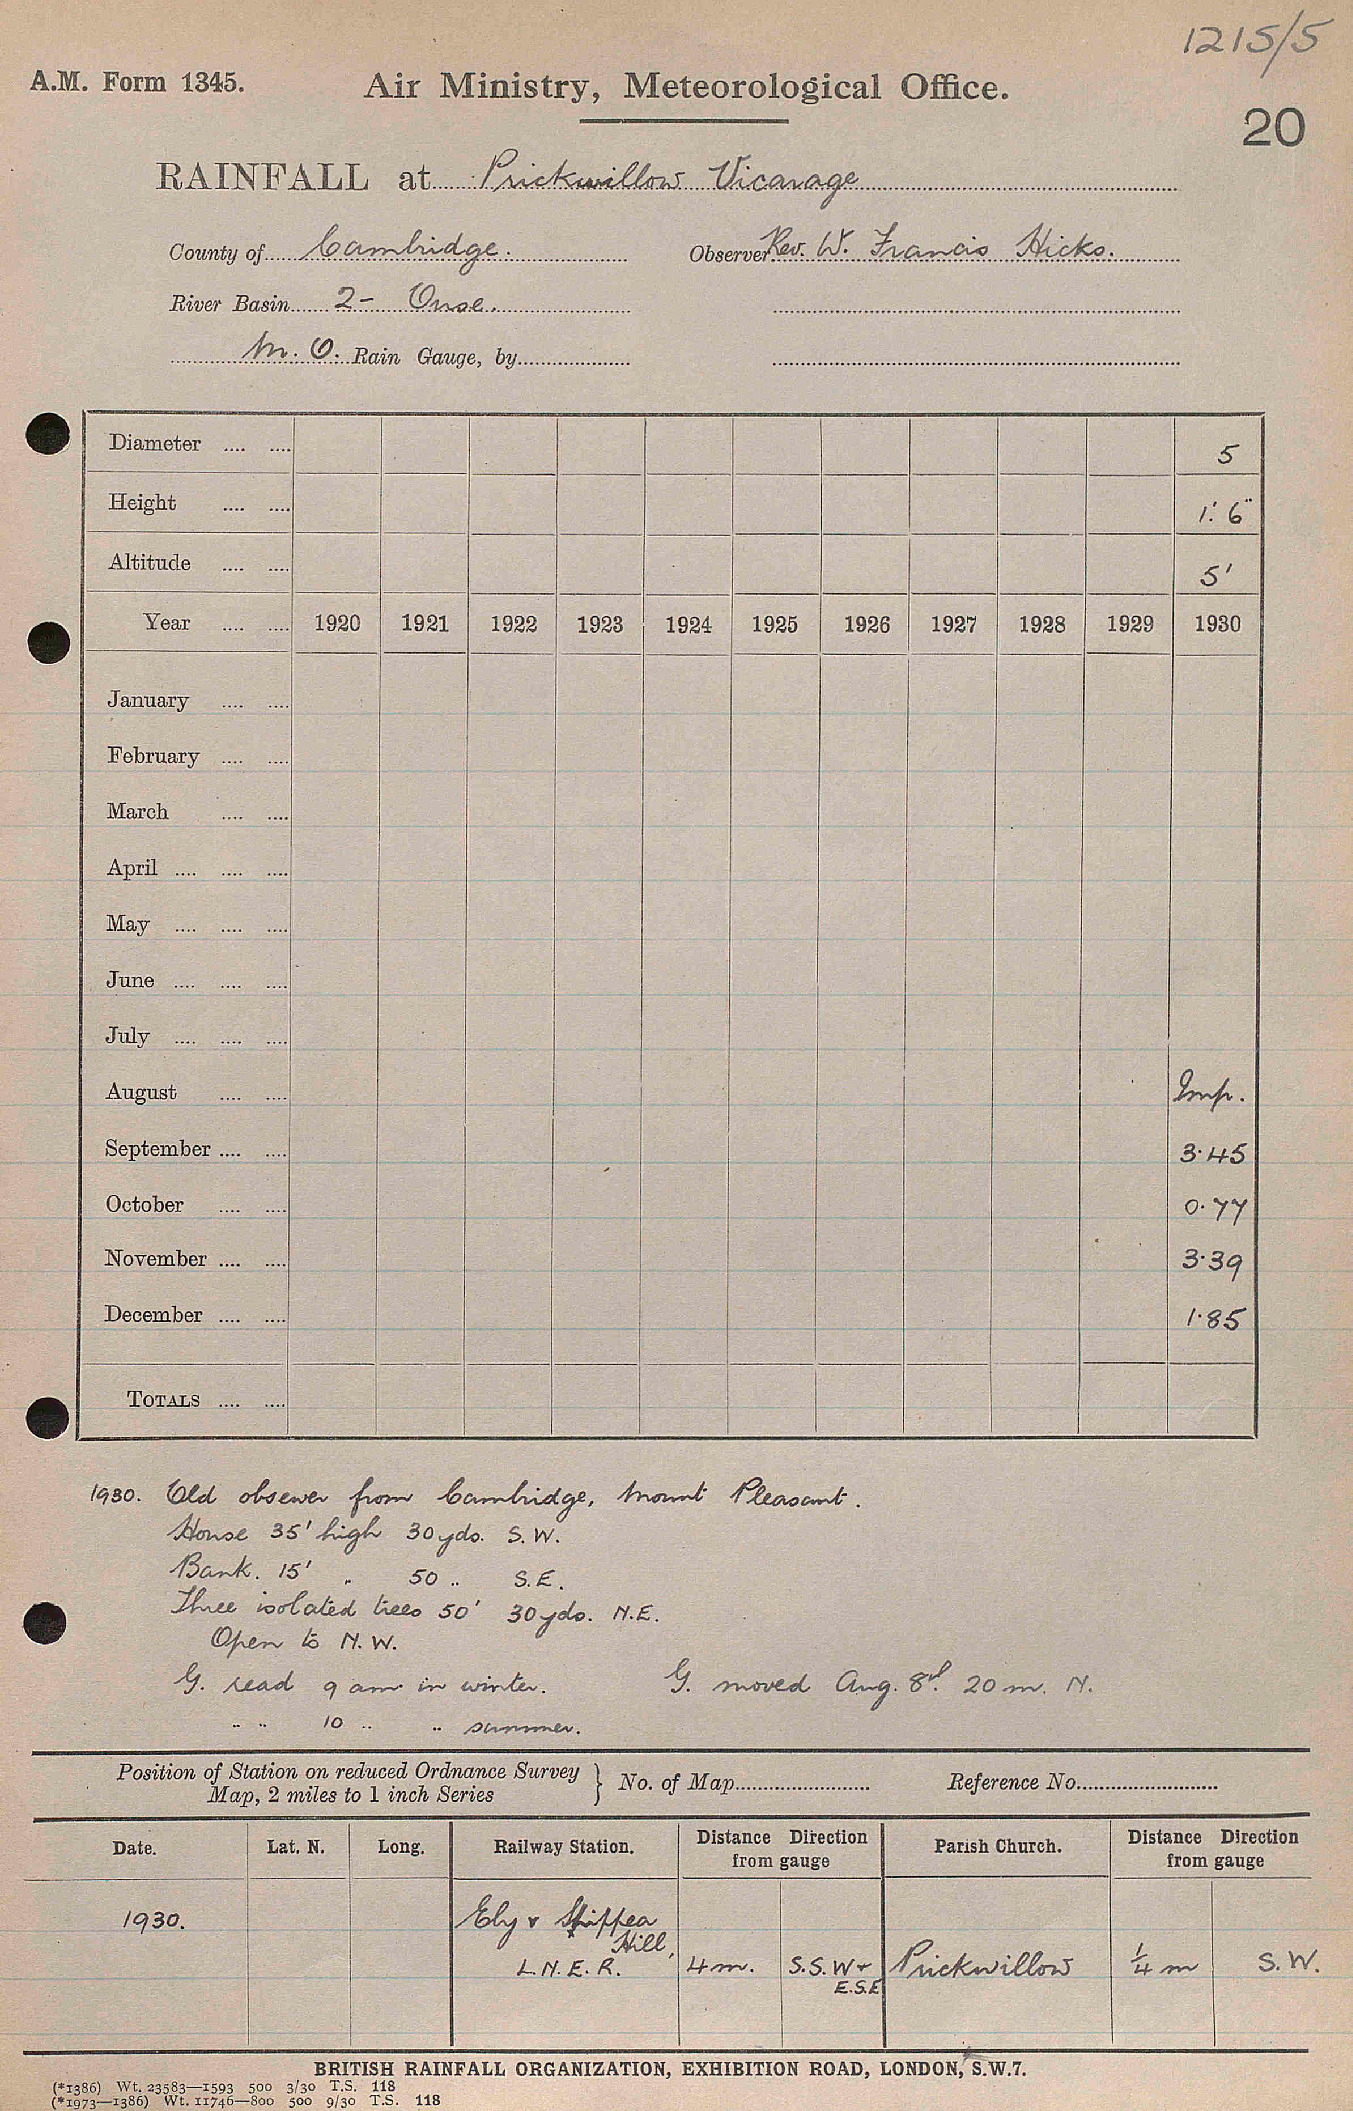 1215/5
A.M. Form 1345. Air Ministry, Meteorological Office.
20
RAINFALL at Prickwillow Vicarage
County of Cambridge. Observer Rev. W. Francis Hicks.
River Basin 2- Ouse.
M.O. Rain Gauge, by
Diameter 5
Height 1'. 6"
Altitude 5'
Year 1920 1921 1922 1923 1924 1925 1926 1927 1928 1929 1930
January
February
March
April
May
June
July
August Imp.
September 3.45
October 0.77
November 3.39
December 1.85
TOTALS
1930. Old observer from Cambridge, Mount Pleasant.
House 35' high 30 yds. S.W.
Bank. 15' " 50 " S.E.
Three isolated trees 50' 30 yds. N.E.
Open to N.W.
G. read 9 am in winter. G. moved Aug. 8th. 20 m. N.
" " 10 " " summer.
Position of Station on reduced Ordnance Survey Map, 2 miles to 1 inch Series } No. of Map Reference No.
Date. Lat. N. Long. Railway Station. Distance Direction from gauge Parish Church. Distance Direction from gauge
1930. Ely & Shippea Hill, L.N.E.R. 4 m. S.S.W & E.S.E Prickwillow 1/4 m S.W.
BRITISH RAINFALL ORGANIZATION, EXHIBITION ROAD, LONDON, S.W.7.
(*1386) Wt. 23583—1593 500 3/30 T.S. 118
(*1973—1386) Wt. 11746—800 500 9/30 T.S. 118